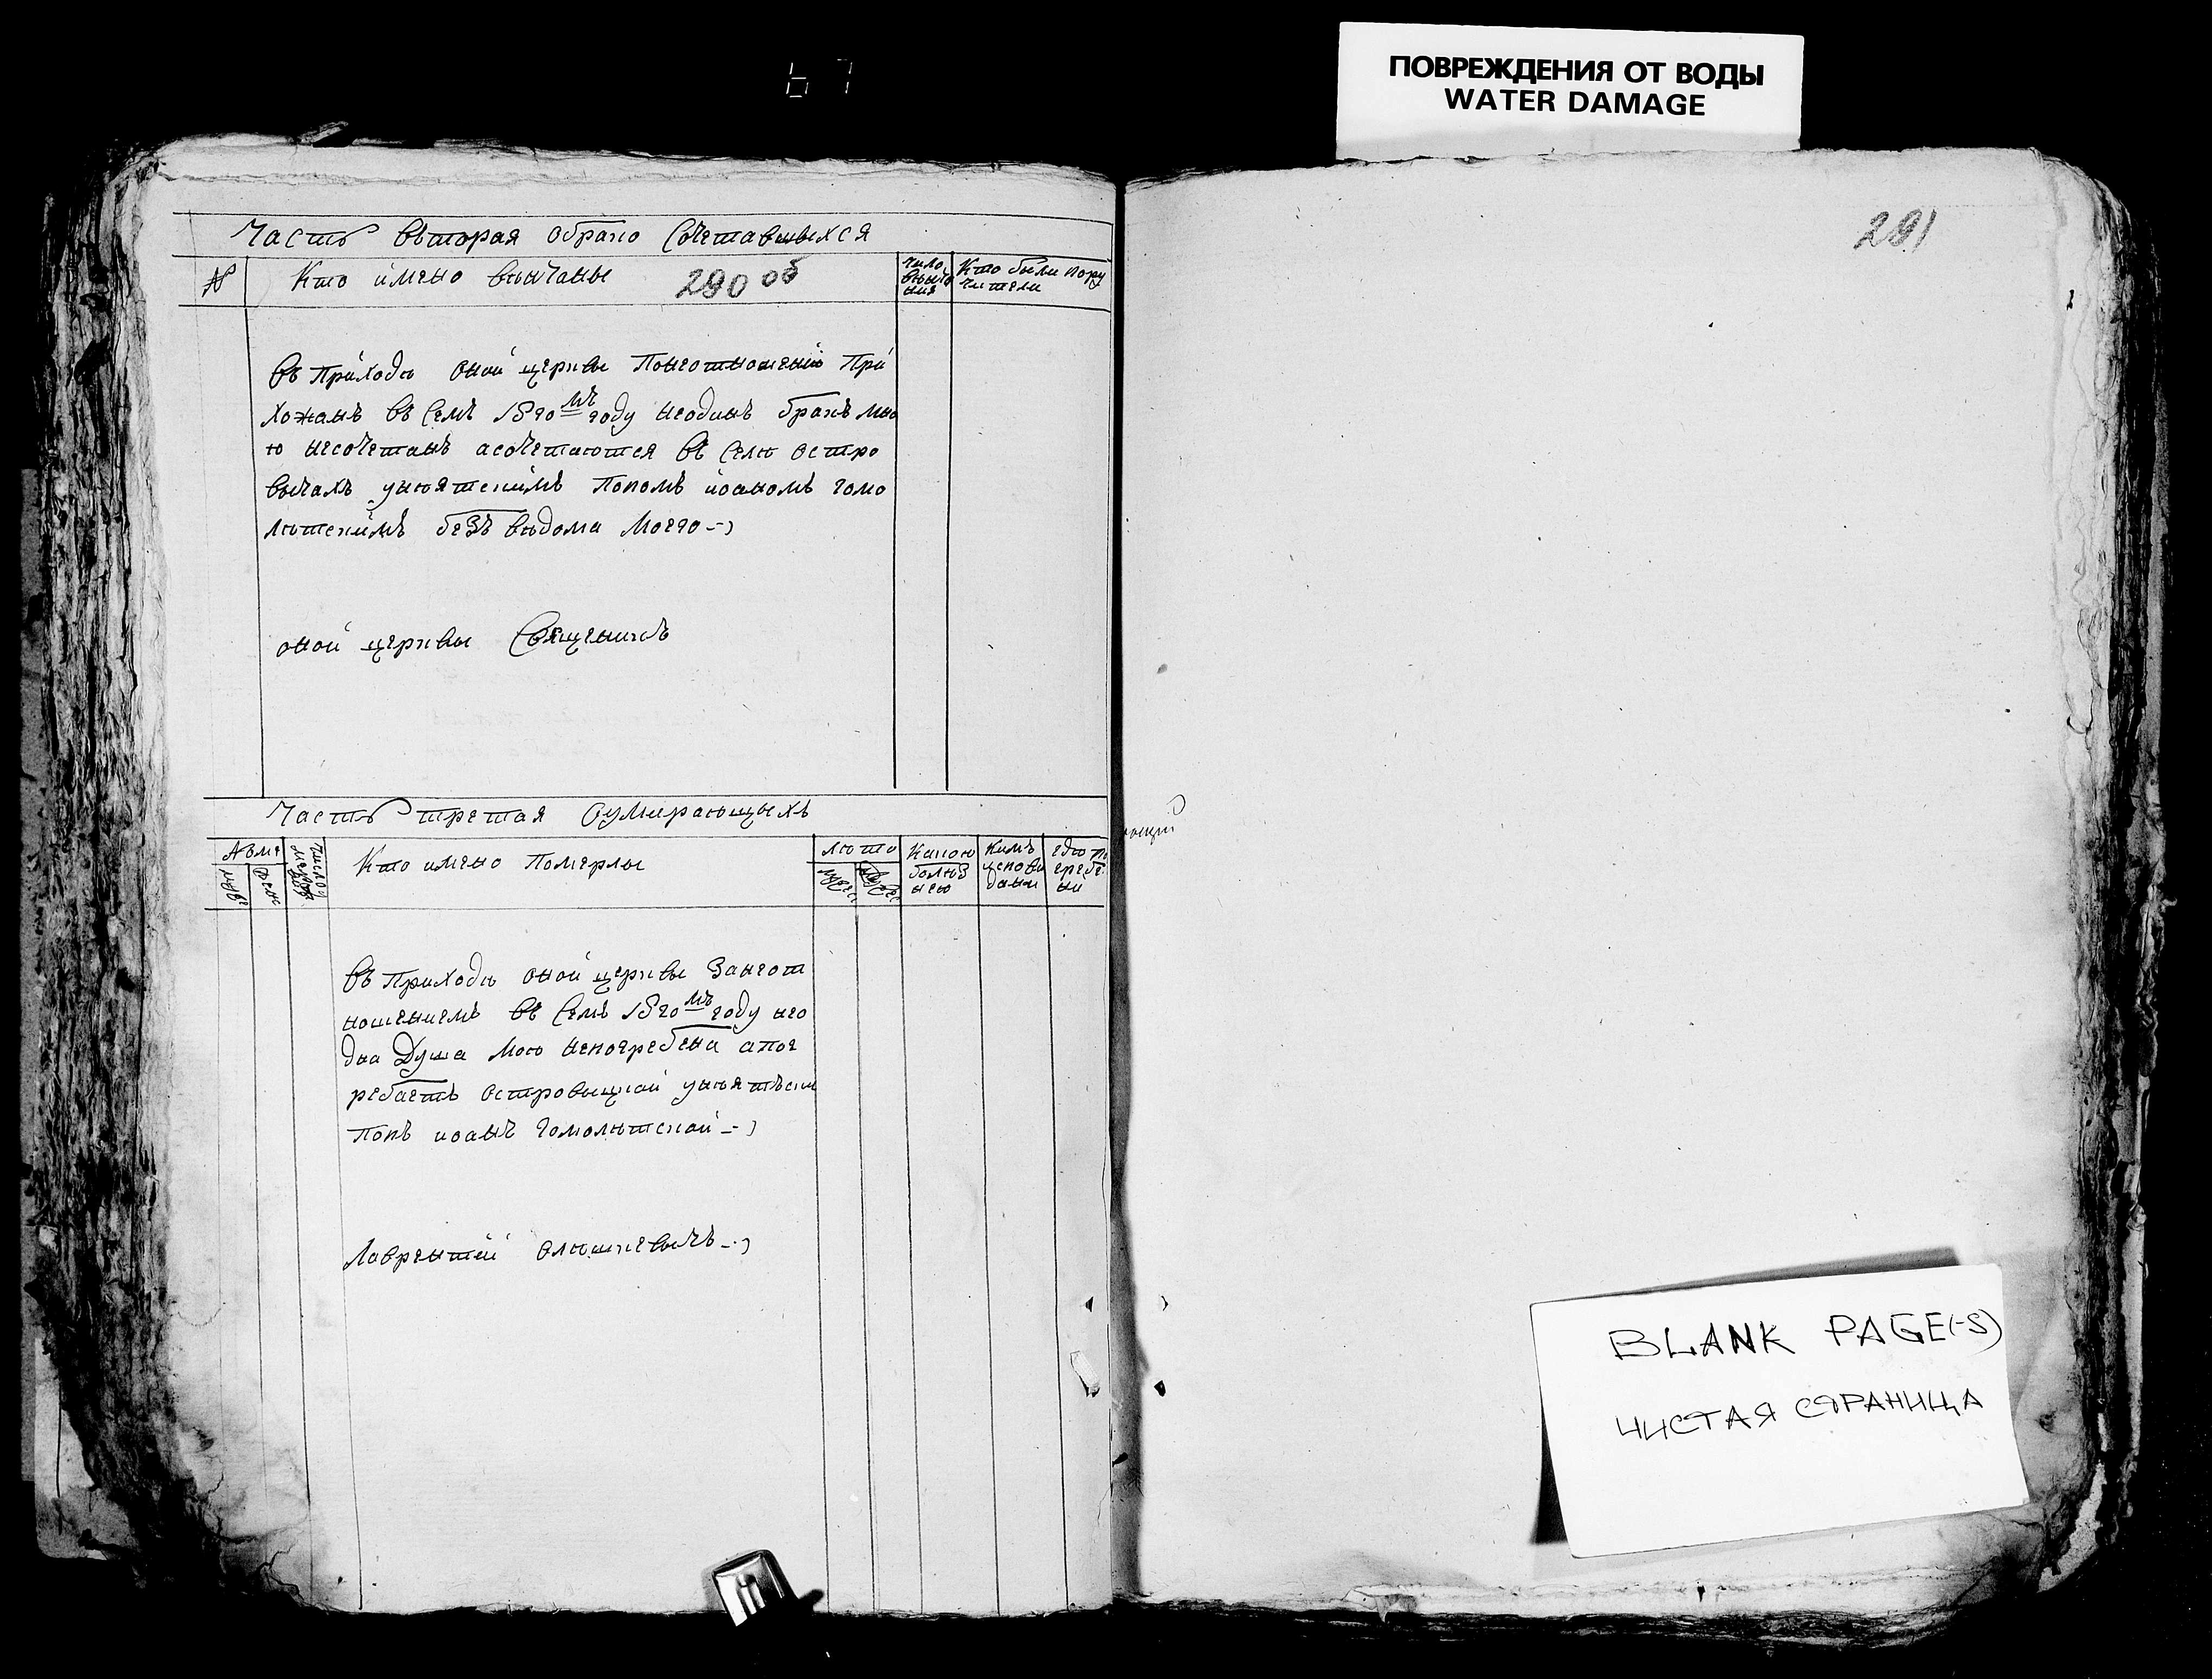 67
ПОВРЕЖДЕНИЯ ОТ ВОДЫ
WATER DAMAGE
Часть вторая обрако Сочетавшыхся
№ Кто имено вѣнчаны 290 об
число вѣнчания
Кто были пору
чители
въ Приходѣ оной церкви Понеотношению При
хожанъ въ семъ 1820мъ году неодинъ бракъ мно
ю несочетанъ асочетаются въ селѣ остро
вычахъ униятскимъ Попомъ иоаномъ гомо
лѣтскимъ безъ вѣдома моего
оной церквы Священикъ
Часть третая Оумирающыхъ
Кто имено Померлы
лѣта
Какою
болѣз
нею
Кимъ
исповѣ
даны
гдѣ по
гребе
ны
въ Приходѣ оной церквы Занеот
ношениемъ въ Семъ 1820мъ году нео
дна Душа мою непогребена апог
ребаетъ островыцкой униятски
Попъ иоанъ Гомолѣтской
Лаврентий Олюшкевычъ
291
BLANK PAGE(-S)
ЧИСТАЯ СТРАНИЦА